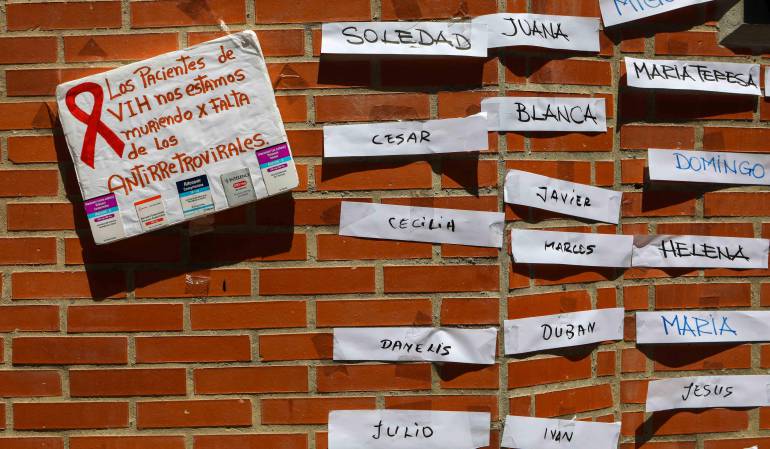 Los Pacientes de
VIH nos estamos
muriendo x falta
de los
Antirretrovirales.
SOLEDAD
JUANA
MARIA TERESA
BLANCA
CESAR
DOMINGO
JAVIER
CECILIA
MARCOS
HELENA
DUBAN
MARIA
DANELIS
JESUS
JULIO
IVAN